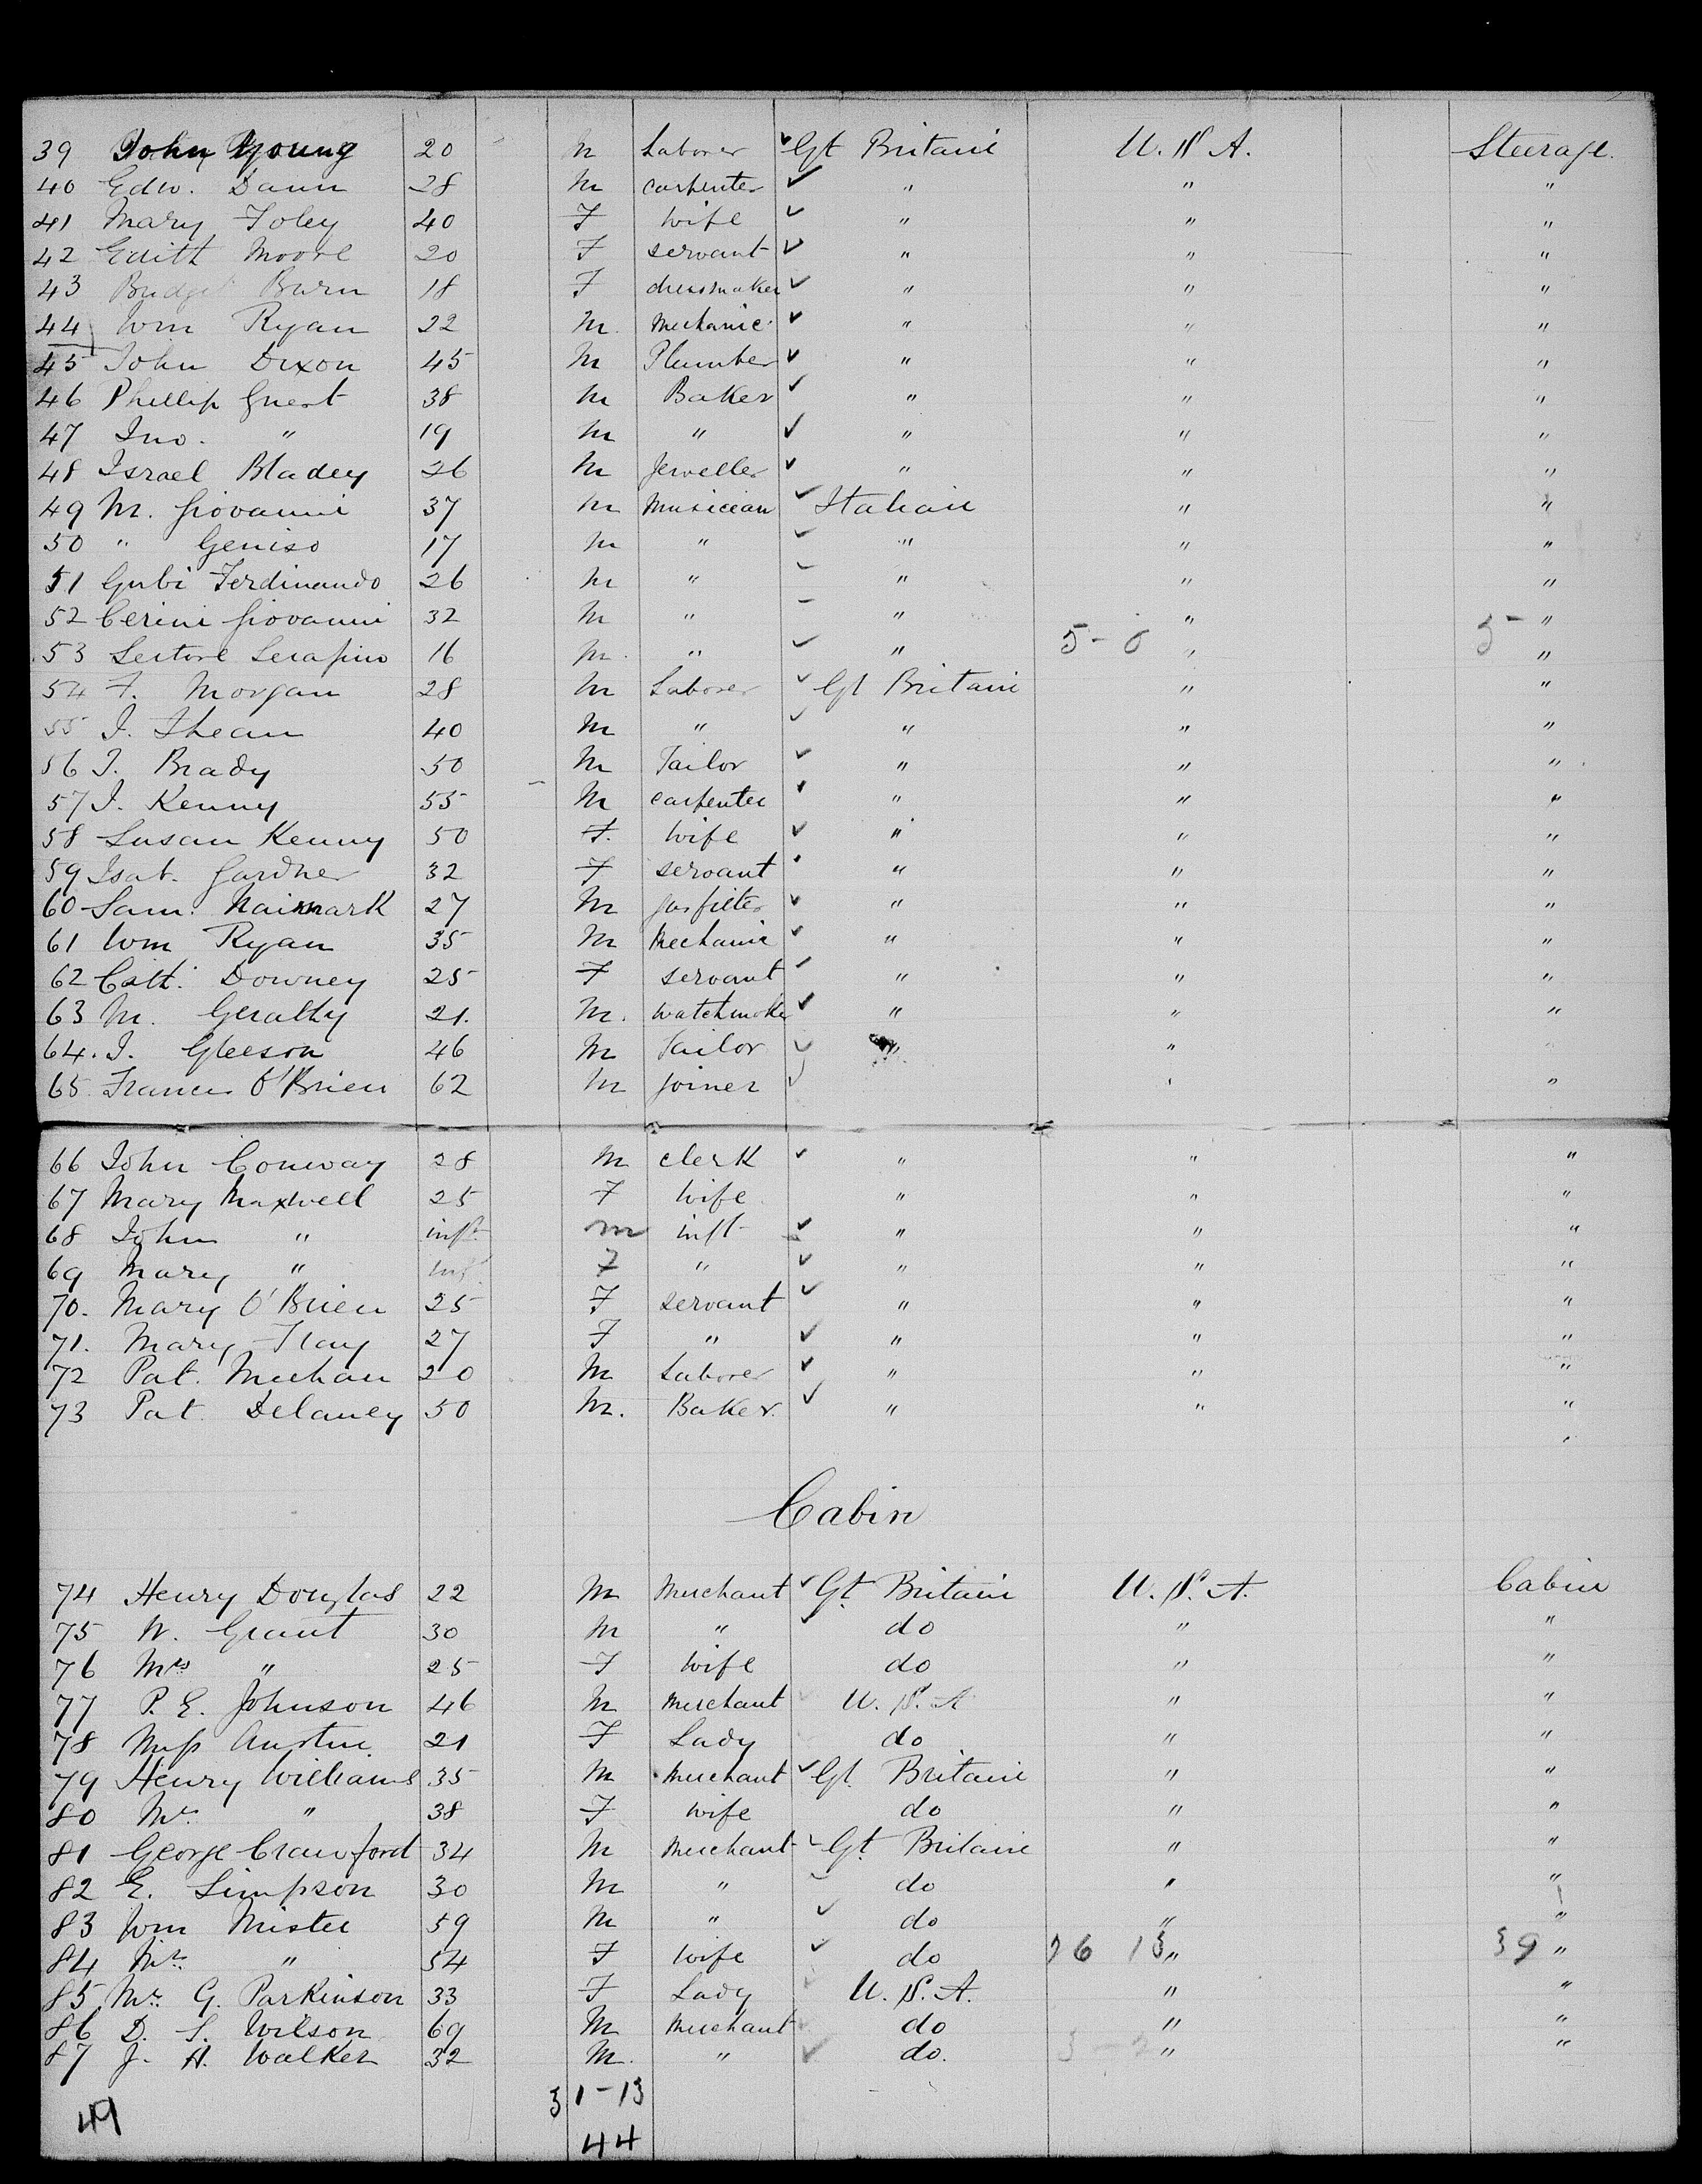 39 John Young 20 M Laborer ✓ Gt Britain U.S.A. Steerage.
40 Edw. Dann 28 M carpenter ✓ " " "
41 Mary Foley 40 F wife ✓ " " "
42 Edith Moore 20 F servant ✓ " " "
43 Bridget Burn 18 F dressmaker ✓ " " "
44 Wm Ryan 22 M. Mechanic ✓ " " "
45 John Dixon 45 M Plumber ✓ " " "
46 Phillip Guest 38 M Baker ✓ " " "
47 Jno. " 19 M " ✓ " " "
48 Israel Bladey 26 M Jeweller ✓ " " "
49 M. Giovanni 37 M Musician ✓ Italian " "
50 " Geniso 17 M " ✓ " " "
51 Gubi Ferdinando 26 M " " " "
52 Cerini Giovanni 32 M " " " "
53 Sertore Serafino 16 M. " ✓ " 5 - 0 " 5 - "
54 F. Morgan 28 M Laborer ✓ Gt Britain " "
55 J. Shean 40 M " ✓ " " "
56 J. Brady 50 M Tailor ✓ " " "
57 J. Kenny 55 M carpenter " " "
58 Susan Kenny 50 F. wife ✓ " " "
59 Isab. Gardner 32 F servant " " "
60 Sam. Naimark 27 M gasfitter ✓ " " "
61 Wm Ryan 35 M Mechanic ✓ " " "
62 Cath. Downey 25 F servant ✓ " " "
63 M. Geralty 21. M. watchmaker ✓ " " "
64. J. Gleeson 46 M Tailor ✓ " " "
65. Francis O'Brien 62 M joiner ✓ " "
66 John Conway 28 M clerk ✓ " " "
67 Mary Maxwell 25 F wife " " "
68 John " inft M inft ✓ " " "
69 Mary " inf. F " ✓ " " "
70. Mary O'Brien 25 F servant ✓ " " "
71. Mary Flay 27 F " ✓ " " "
72 Pat. Meehan 20 M Laborer ✓ " " "
73 Pat. Delaney 50 M. Baker. ✓ " " "
Cabin
74 Henry Douglas 22 M Merchant ✓ Gt. Britain U.S.A. Cabin
75 W. Grant 30 M " ✓ do " "
76 Mrs " 25 F wife do " "
77 P. E. Johnson 46 M merchant U.S.A " "
78 Miss Austin 21 F Lady do " "
79 Henry Williams 35 M Merchant ✓ Gt. Britain " "
80 Mrs. " 38 F wife do " "
81 George Crawford 34 M Merchant ✓ Gt. Britain " "
82 E. Simpson 30 M " ✓ do " "
83 Wm Mister 59 M " ✓ do " "
84 Mrs. " 54 F wife ✓ do 26 13 " 39 "
85 Mrs. G. Parkinson 33 F Lady ✓ U.S.A. " "
86 D. S. Wilson 69 M Merchant do " "
87 J. H. Walker 32 M. " ✓ do. 3 - 2 " "
31 - 13
49
44